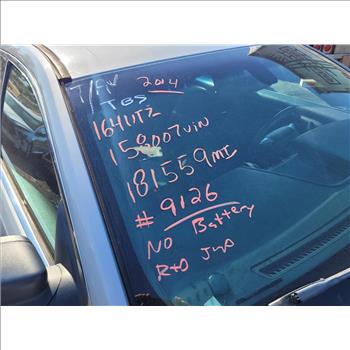 T/A 2014
TBS
1641UTZ
158007VIN
181559MI
# 9126
NO Battery
R+O Jump